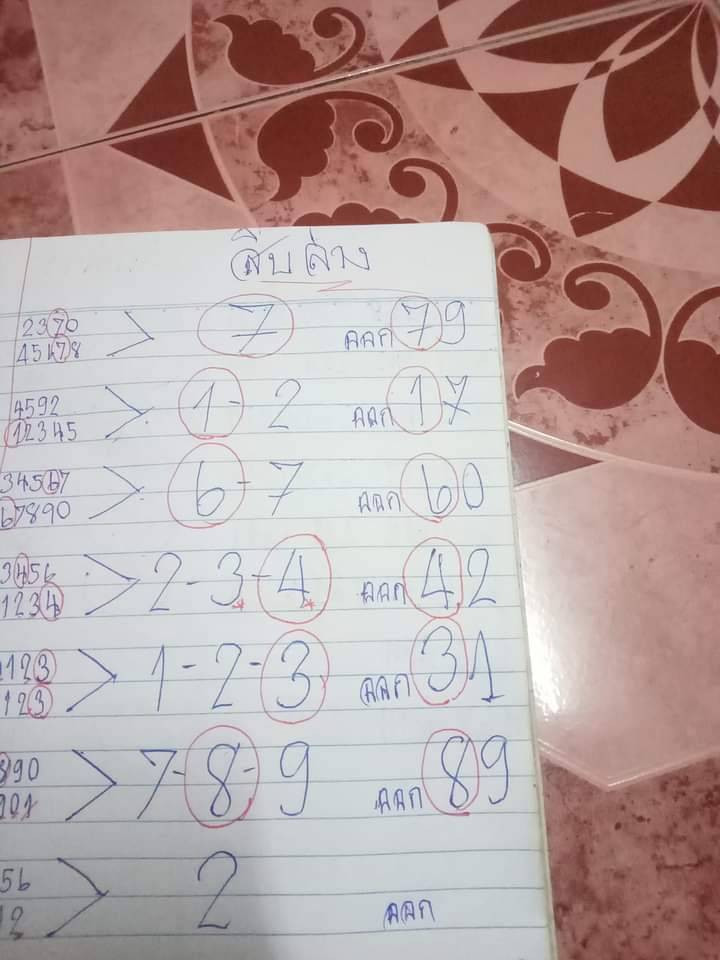 สิบล่าง
2370
45678 > 7 ออก 79
4592
12345 > 1 - 2 ออก 17
34567
67890 > 6 - 7 ออก 60
3456
1234 > 2 - 3 - 4 ออก 42
123
123 > 1 - 2 - 3 ออก 31
890
> 7 - 8 - 9 ออก 89
56
12 > 2 ออก